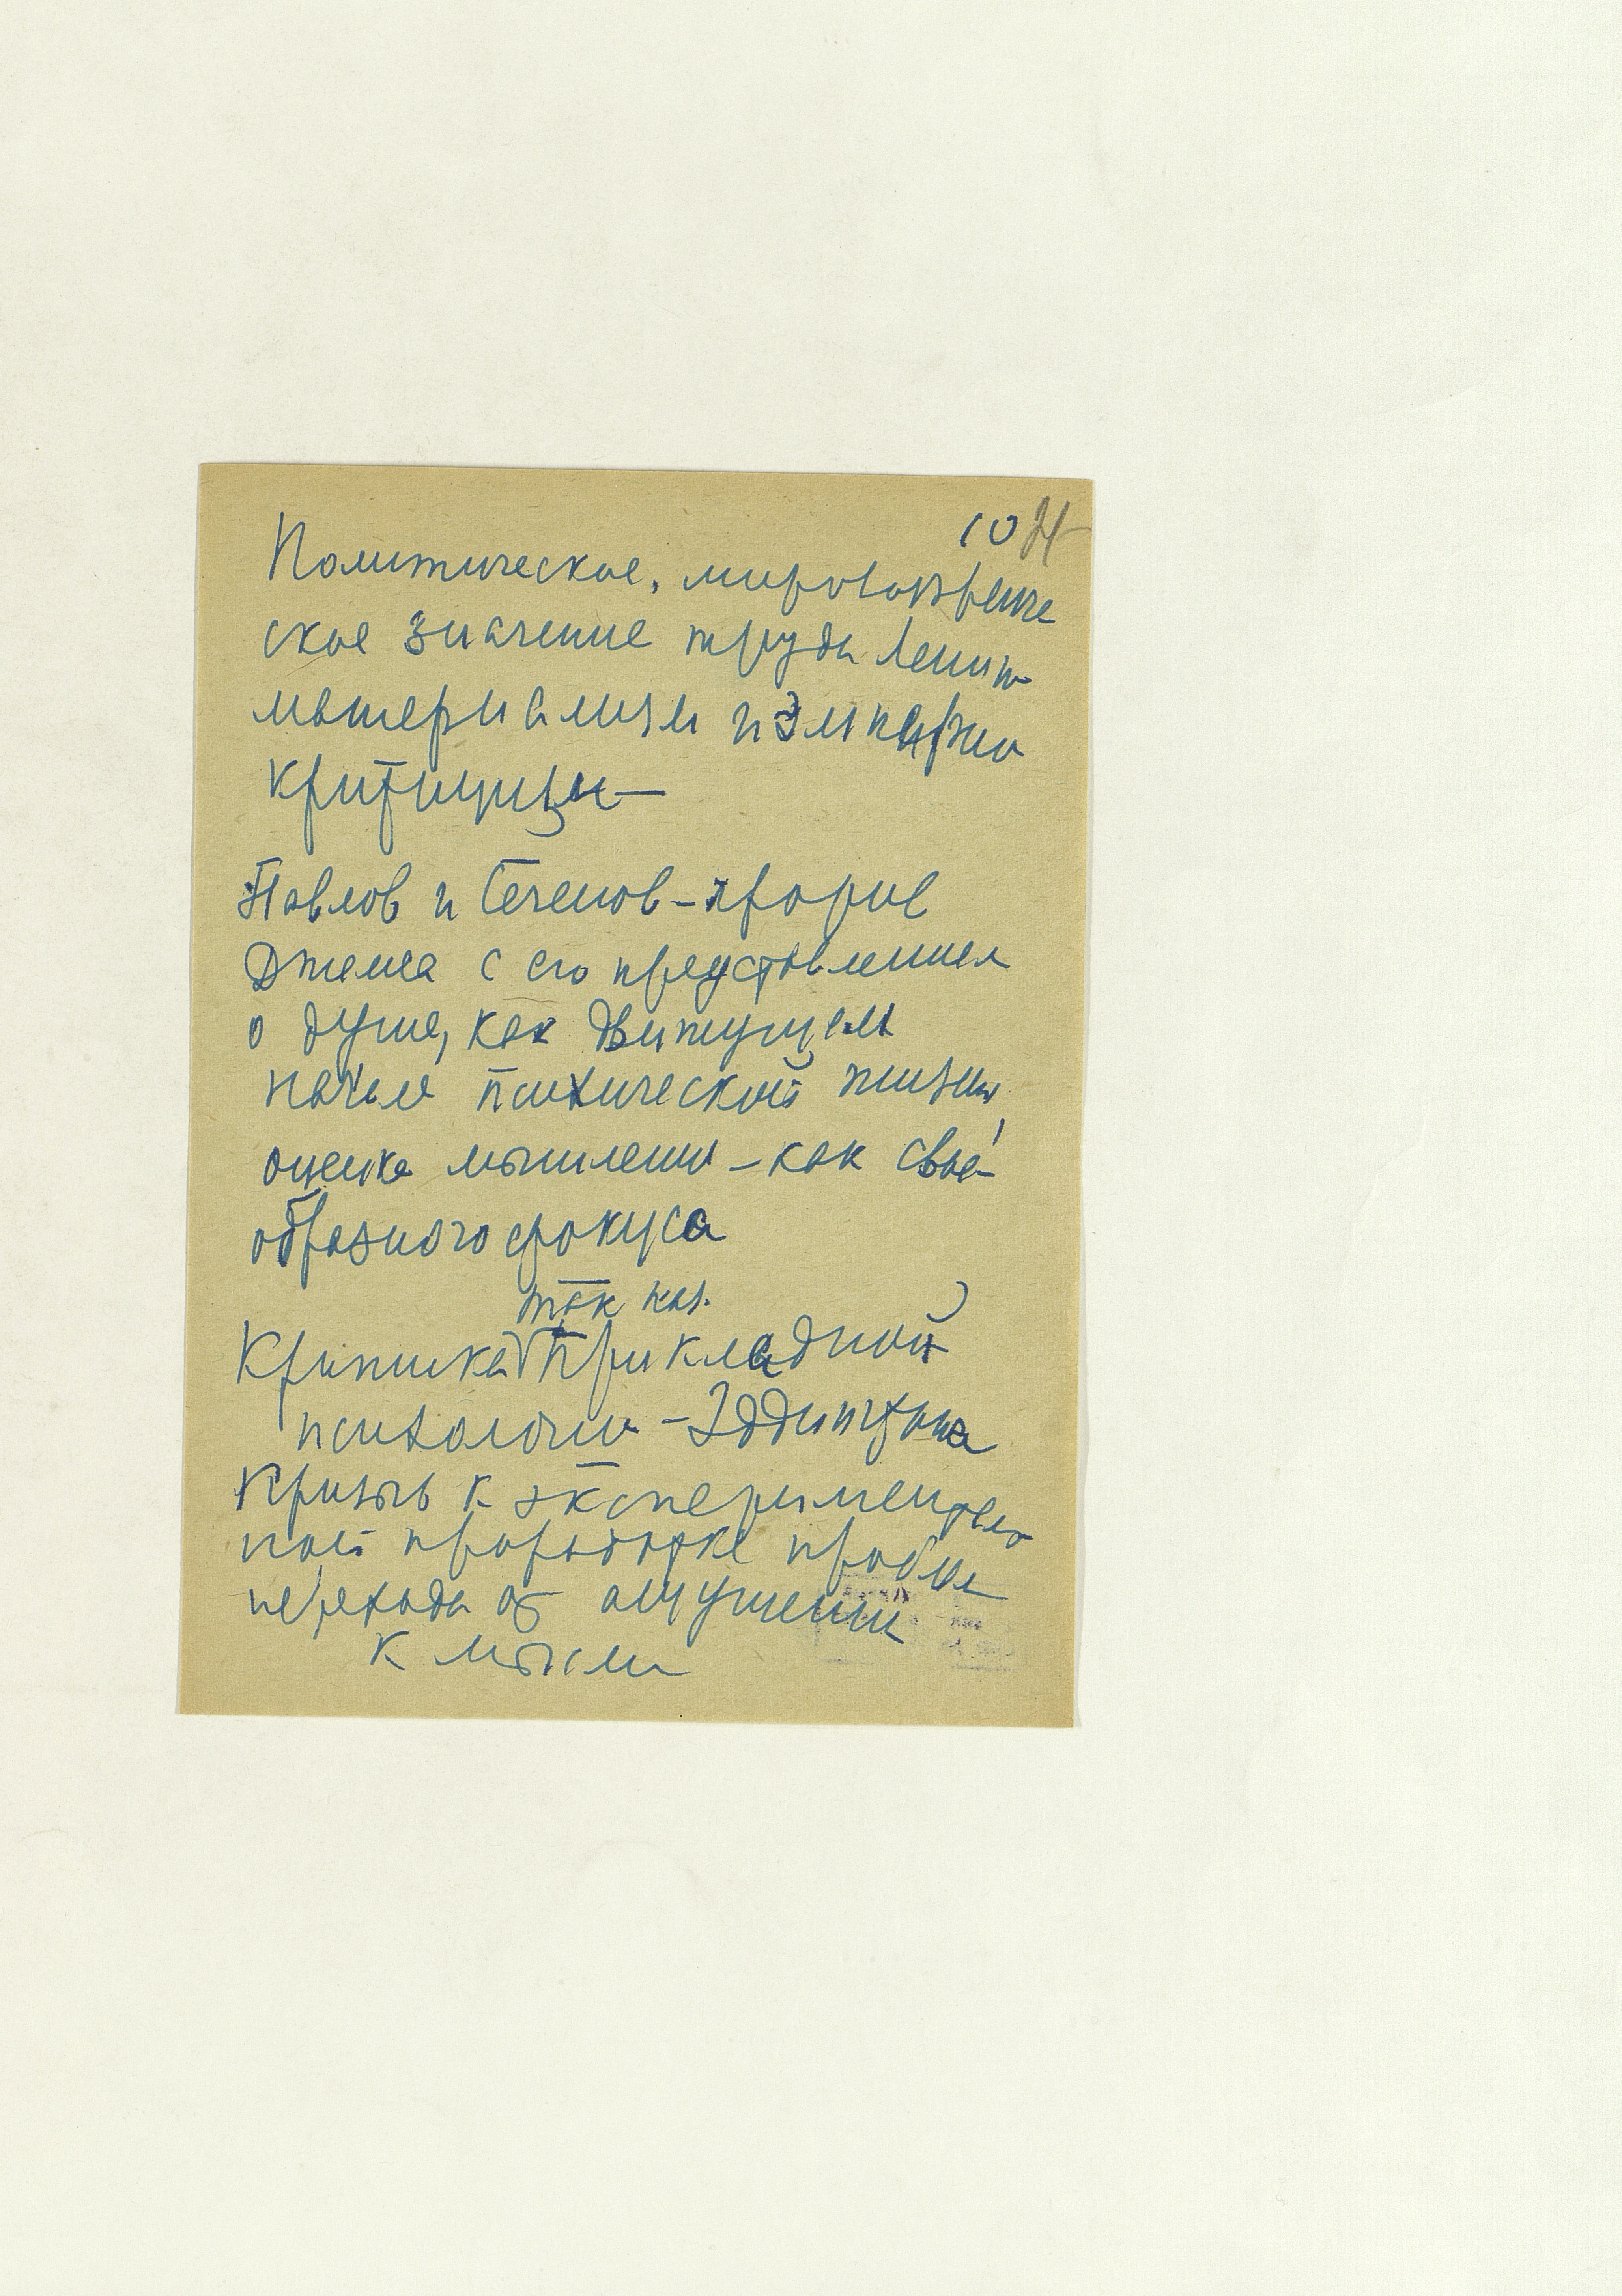 10 21
Политическое, мировоззренче
ское значение труда Ленин
материализм и эмпирио
критицизм—
Павлов и Сеченов – против
Джемса с его представлением
о душе, как движущем
начале психической жизни,
оценка мышления – как свое-
образного фокуса
так наз.
Критика прикладной
психологии – Эддингтона
Призыв к эксперименталь
ной проработке проблем
перехода от ощущении
к мысли